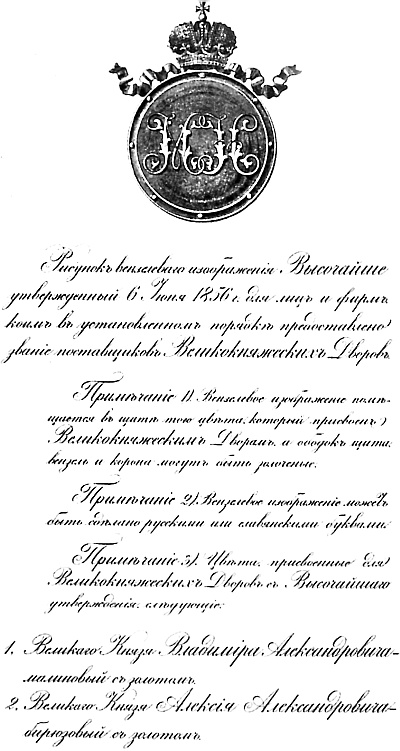 Рисунокъ вензелеваго изображенія Высочайше
утвержденный 6 Іюня 1856 г. для лицъ и фирмъ
коимъ въ установленномъ порядкѣ предоставлено
званіе поставщиковъ Великокняжескихъ Дворовъ
Примѣчаніе 1). Вензелевое изображеніе помѣ-
щается въ щитѣ того цвѣта, который присвоенъ
Великокняжескимъ Дворамъ, и ободокъ щита,
вензель и корона могутъ быть золоченые.
Примѣчаніе 2). Вензелевое изображеніе можетъ
быть сдѣлано русскими или славянскими буквами.
Примѣчаніе 3). Цвѣта, присвоенные для
Великокняжескихъ Дворовъ съ Высочайшаго
утвержденія, слѣдующіе:
1. Великаго Князя Владиміра Александровича-
малиновый съ золотомъ.
2. Великаго Князя Алексія Александровича-
бирюзовый съ золотомъ.